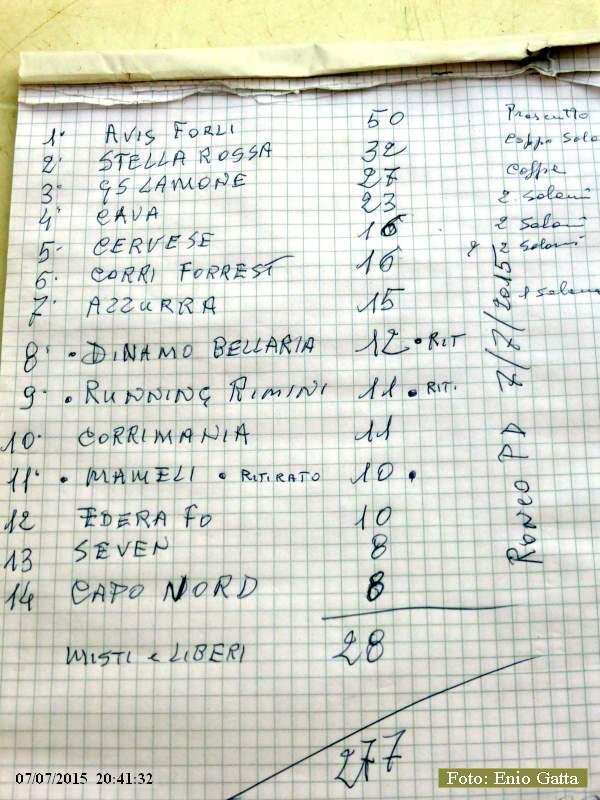 1° AVIS FORLI 50 Prosciutto
2° STELLA ROSSA 32 Coppa Salame
3° GS LAMONE 27 Coppa
4° CAVA 23 2 Salami
5° CERVESE 16 2 Salami
6° CORRI FORREST 16 2 Salami
7° AZZURRA 15 1 Salame
8° • DINAMO BELLARIA 12 • RIT
9° • RUNNING RIMINI 11 • RITI.
10° CORRIMANIA 11
11° • MAMELI • RITIRATO 10 •
12 EDERA FO 10
13 SEVEN 8
14 CAPO NORD 8
MISTI e LIBERI 28
277
RONCO PD 7/7/2015
07/07/2015 20:41:32
Foto: Enio Gatta